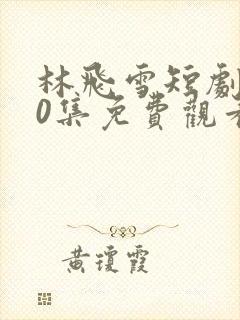 林飛雪短劇
0集免費觀看
黃瓊霞